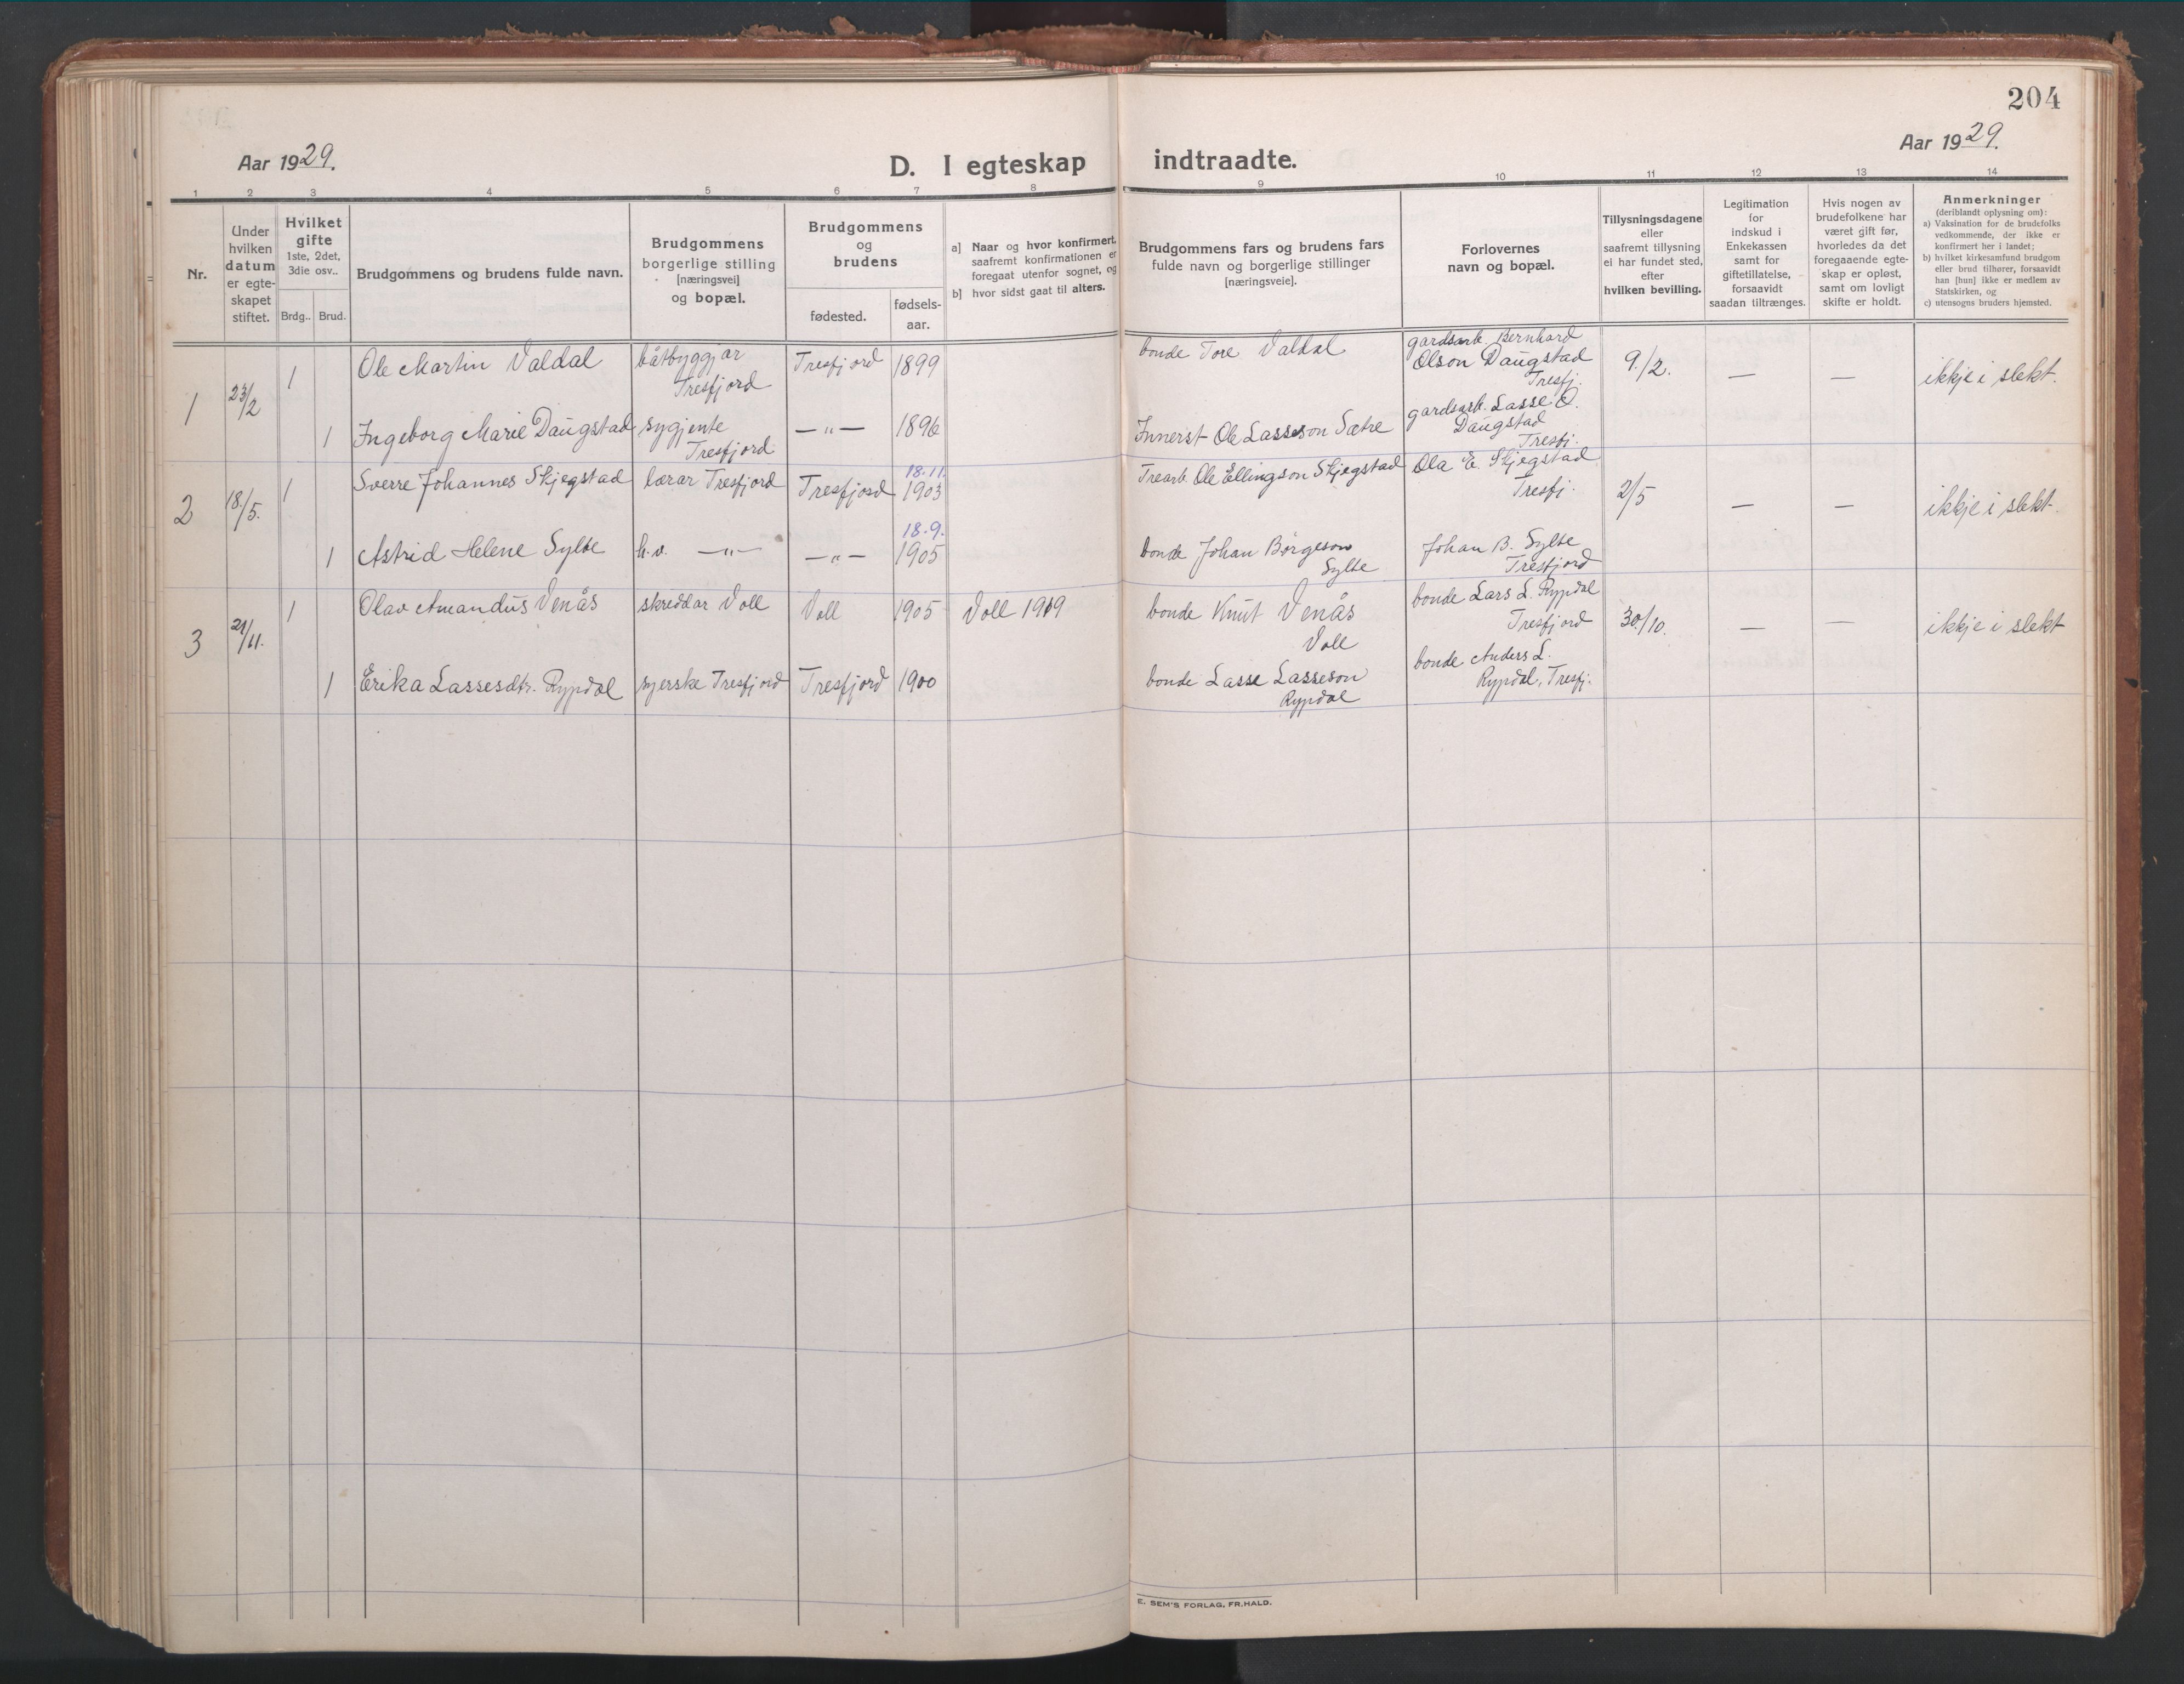 204
Aar 1929.
Aar 1929.
D. I egteskap indtraadte.
1 2 3 4 5 6 7 8 9 10 11 12 13 14
Nr.
Under hvilken datum er egte-skapet stiftet.
Hvilket gifte
1ste, 2det, 3die osv..
Brdg.. Brud.
Brudgommens og brudens fulde navn.
Brudgommens
borgerlige stilling
[næringsvei]
og bopæl.
Brudgommens
og
brudens
fødested.
fødsels-
aar.
a] Naar og hvor konfirmert,
saafremt konfirmationen er
foregaat utenfor sognet, og
b] hvor sidst gaat til alters.
Brudgommens fars og brudens fars
fulde navn og borgerlige stillinger
[næringsveie].
Forlovernes
navn og bopæl.
Tillysningsdagene
eller
saafremt tillysning
ei har fundet sted,
efter
hvilken bevilling.
Legitimation
for
indskud i
Enkekassen
samt for
giftetillatelse,
forsaavidt
saadan tiltrænges.
Hvis nogen av
brudefolkene har
været gift før,
hvorledes da det
foregaaende egte-
skap er opløst,
samt om lovligt
skifte er holdt.
Anmerkninger
(deriblandt oplysning om):
a) Vaksination for de brudefolks
vedkommende, der ikke er
konfirmert her i landet;
b) hvilket kirkesamfund brudgom
eller brud tilhører, forsaavidt
han [hun] ikke er medlem av
Statskirken, og
c) utensogns bruders hjemsted.
1 23/2 1 Ole Martin Valdal båtbyggjar Tresfjord Tresfjord 1899 bonde Tore Valdal gardsarb. Bernhard Olson Daugstad Tresfj. 9./2. — — ikkje i slekt.
1 Ingeborg Marie Daugstad sygjente Tresfjord —"— 1896 Innerst Ole Lasseson Sætre gardsarb. Lasse O. Daugstad Tresfj.
2 18./5. 1 Sverre Johannes Skjegstad lærar Tresfjord Tresfjord 18.11. 1903 Trearb. Ole Ellingson Skjegstad Ola E. Skjegstad Tresfj. 2/5 — — ikkje i slekt.
1 Astrid Helene Sylte h.v. —"— —"— 18.9. 1905 bonde Johan Børgeson Sylte Johan B. Sylte Tresfjord
3 21/11. 1 Olav Amandus Venås skreddar Voll Voll 1905 Voll 1919 bonde Knut Venås Voll bonde Lars L. Rypdal Tresfjord 30./10. — — ikkje i slekt
1 Erika Lassesdtr. Rypdal syerske Tresfjord Tresfjord 1900 bonde Lasse Lasseson Rypdal bonde Anders L. Rypdal, Tresfj.
E. SEM'S FORLAG, FR.HALD.